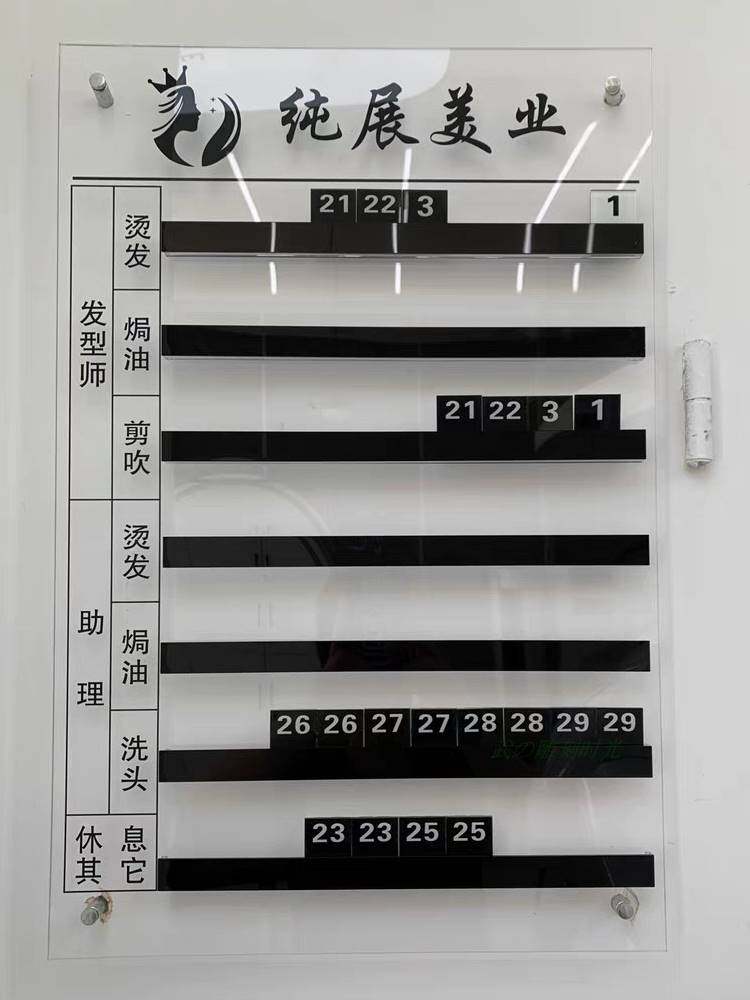 纯展美业
发型师
烫发
21 22 3 1
焗油
剪吹
21 22 3 1
助理
烫发
焗油
洗头
26 26 27 27 28 28 29 29
休息
其它
23 23 25 25